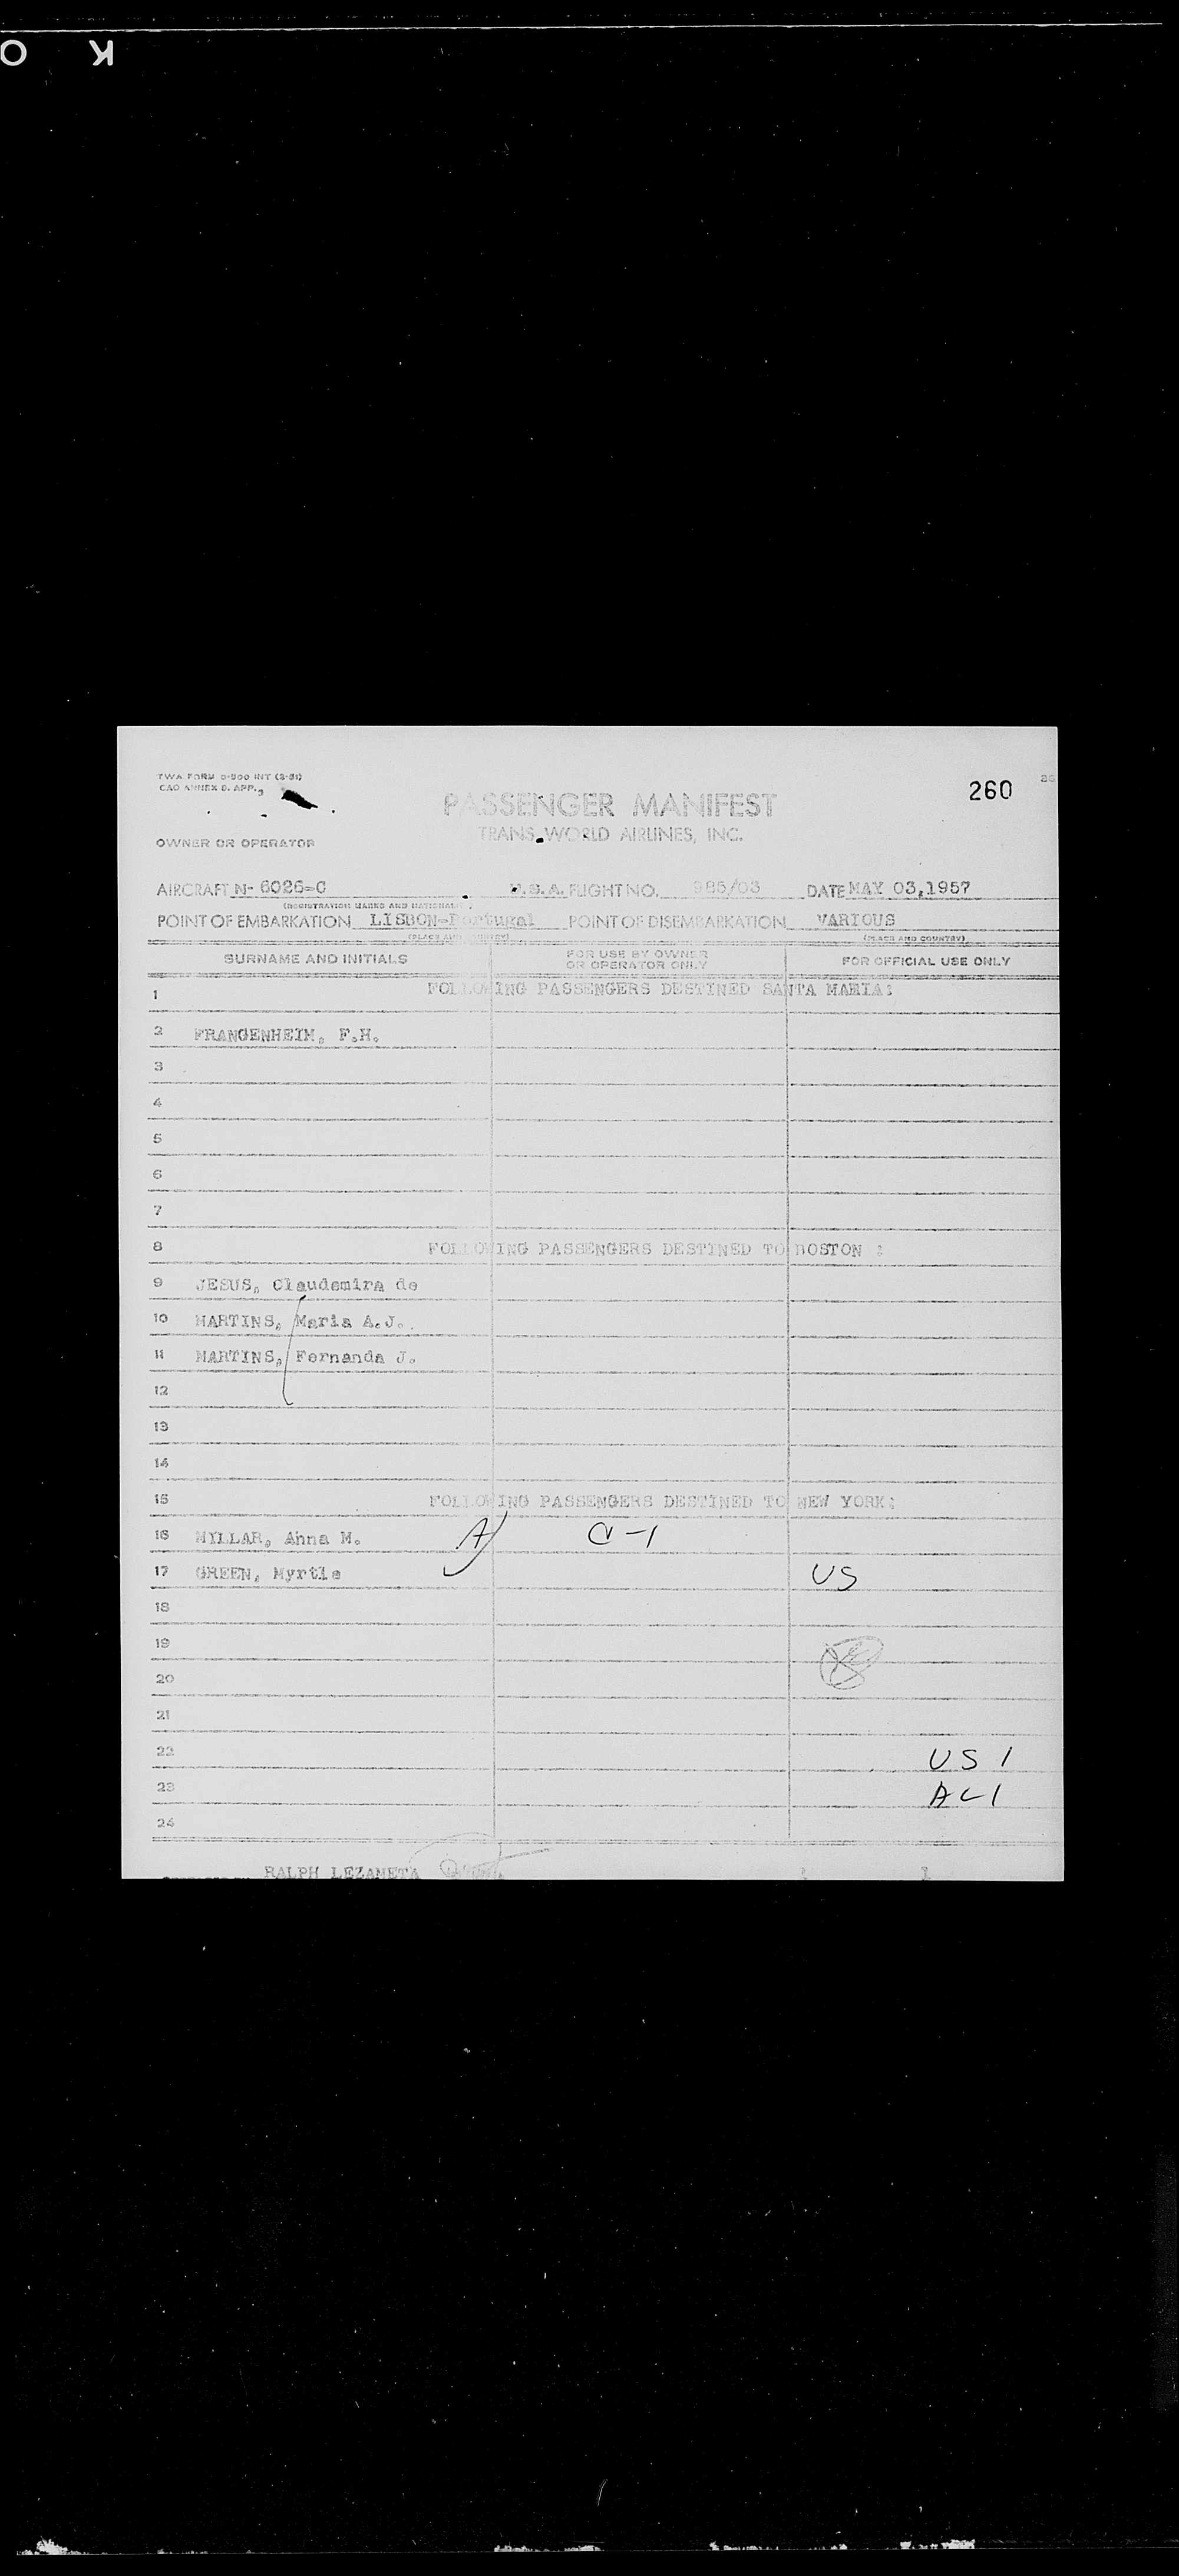 O K
TWA FORM
260
PASSENGER MANIFEST
TRANS WORLD AIRLINES, INC.
OWNER OR OPERATOR
AIRCRAFT N- 6026-C U.S.A. FLIGHT NO. 985/03 DATE MAY 03,1957
(REGISTRATION MARKS AND
POINT OF EMBARKATION LISBON-Portugal POINT OF DISEMBARKATION VARIOUS
(PLACE AND COUNTRY) (PLACE AND COUNTRY)
SURNAME AND INITIALS FOR USE BY OWNER OR OPERATOR ONLY FOR OFFICIAL USE ONLY
1 FOLLOWING PASSENGERS DESTINED SANTA MARIA:
2 FRANGENHEIM, F.H.
3
4
5
6
7
8 FOLLOWING PASSENGERS DESTINED TO BOSTON :
9 JESUS, Claudemira de
10 MARTINS, Maria A.J.
11 MARTINS, Fernanda J.
12
13
14
15 FOLLOWING PASSENGERS DESTINED TO NEW YORK:
16 MILLAR, Anna M. A
17 GREEN, Myrtle US
18
19
20
21
22 US 1
23 AL 1
24
RALPH LEZAMETA